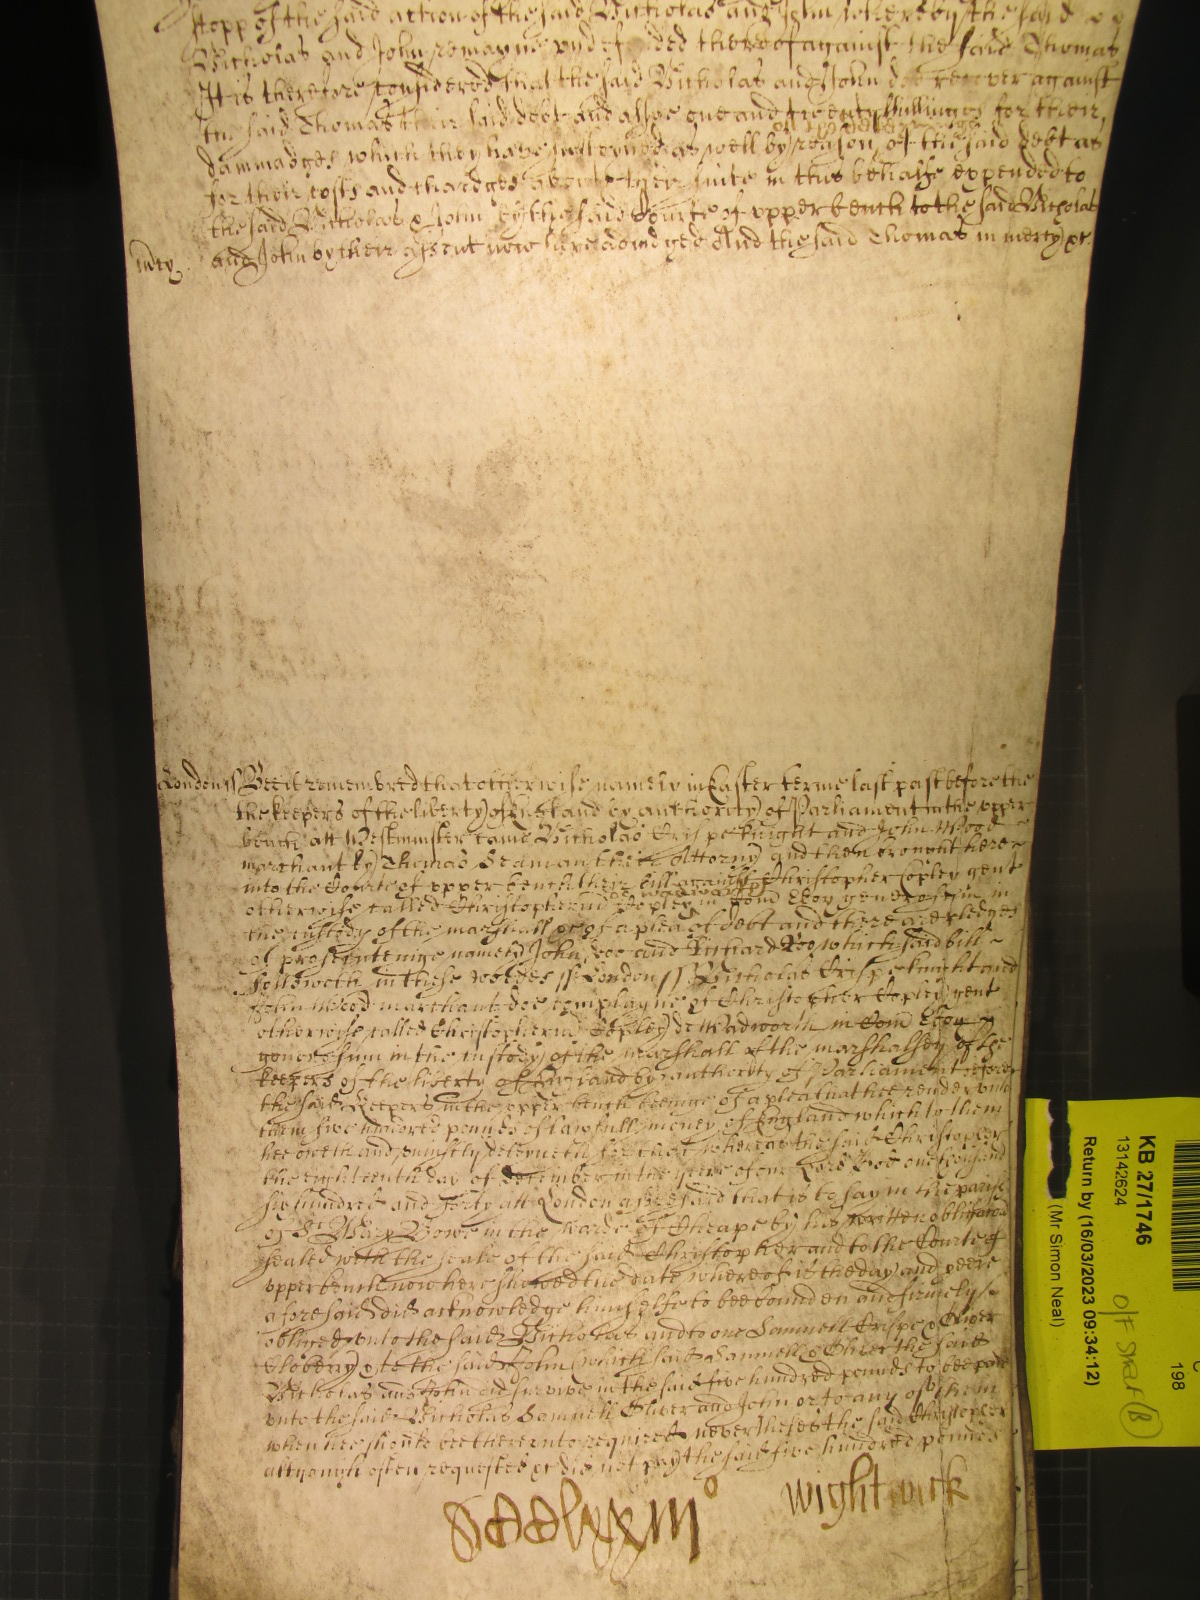 stopp of the said action of the said Nicholas and John whereby the said
Nicholas and John remayne undefended thereof against the said Thomas
It is therefore considered that the said Nicholas and John doe recover against
the said Thomas their said debt and alsoe one and twenty shillinges for their
dammadges which they have susteyned as well by reason of the said debt as
for their costs and chardges about their suite in this behalfe expended to
the said Nicholas & John by the said Courte of upper bench to the said Nicholas
mercy and John by their assent now here adiudged And the said Thomas in mercy &c
London ss Bee it remembred that otherwise namely in Easter terme last past before the
the keepers of the liberty of England by authority of Parliament in the upper
bench att Westminster came Nicholas Crispe knight and John Wood
marchant by Thomas Seaman their Attorny and then brought here
into the Courte of upper bench their bill against Christopher Copley gent
otherwise called Christopherum Copley de Wadworth in Com Ebor generosum in
the custody of the marshall &c of a plea of debt and there are pledges
of prosecutinge namely John doe and Richard Roo which said bill
followeth in these wordes ss London ss Nicholas Crispe knight and
John Wood marchant doe complayne of Christopher Copley gent
otherwise called Christopherum Copley de Wadworth in Com Ebor
generosum in the custody of the marshall of the marshalsey of the
keepers of the liberty of England by authority of Parliament before
the said Keepers in the upper bench beeinge of a plea that hee render unto
them five hundred pounds of lawfull money of England which to them
hee oweth and uniustly deteyneth for that whereas the said Christopher
the eighteenth day of december in the yeere of our Lord God one thousand
six hundred and forty att London aforesaid that is to say in the parish
of St Mary Bowe in the warde of Cheape by his written obligatory
sealed with the seale of the said Christopher and to the Courte of
upper bench now here shewed the date whereof is the day and yeere
aforesaid did acknowledge himselfe to bee bounden and firmely
obliged unto the said Nicholas and to one Samuell Crispe & Oliver
Clobery & to the said John which said Samuell & Oliver the said
Nicholas and John did survive in the said five hundred pounds to bee paid
unto the said Nicholas Samuell Oliver and John or to any of them
when hee should bee thereunto required neverthelesse the said Christopher
although often requested &c did not pay the said five hundred pounds
Wightwick
KB 27/1746
13142624
Return by (16/03/2023 09:34:12)
(Mr Simon Neal)
198